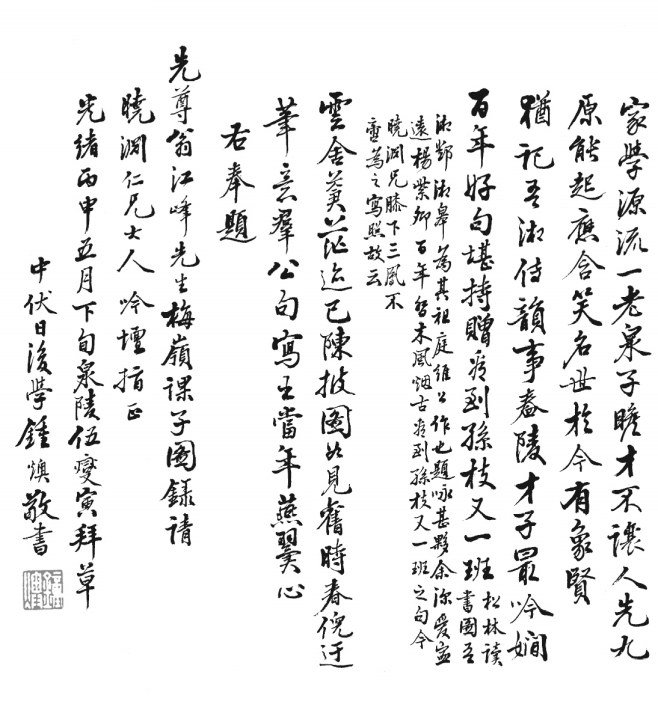 家學源流一老泉子瞻才不讓人先九
原能起應含笑名世於今有象賢
猶記吾湘侍韻事舂陵才子最吟嫻
百年好句堪持贈看到孫枝又一班松林讀
書圖吾
湘鄧湘皋為其祖庭維公作也題咏甚夥余深愛寍
遠楊紫卿百年喬木風烟古看到孫枝又一班之句今
曉澗兄膝下三鳳不
啻為之寫照故云
雲舍蒼茫迹已陳披圖如見舊時春倪迂
筆意羣公句寫出當年燕翼心
右奉題
先尊翁江峰先生梅嶺課子圖錄請
曉澗仁兄大人吟壇指正
光緒丙申五月下旬泉陵伍燮寅拜草
中伏日後學鍾煥敬書